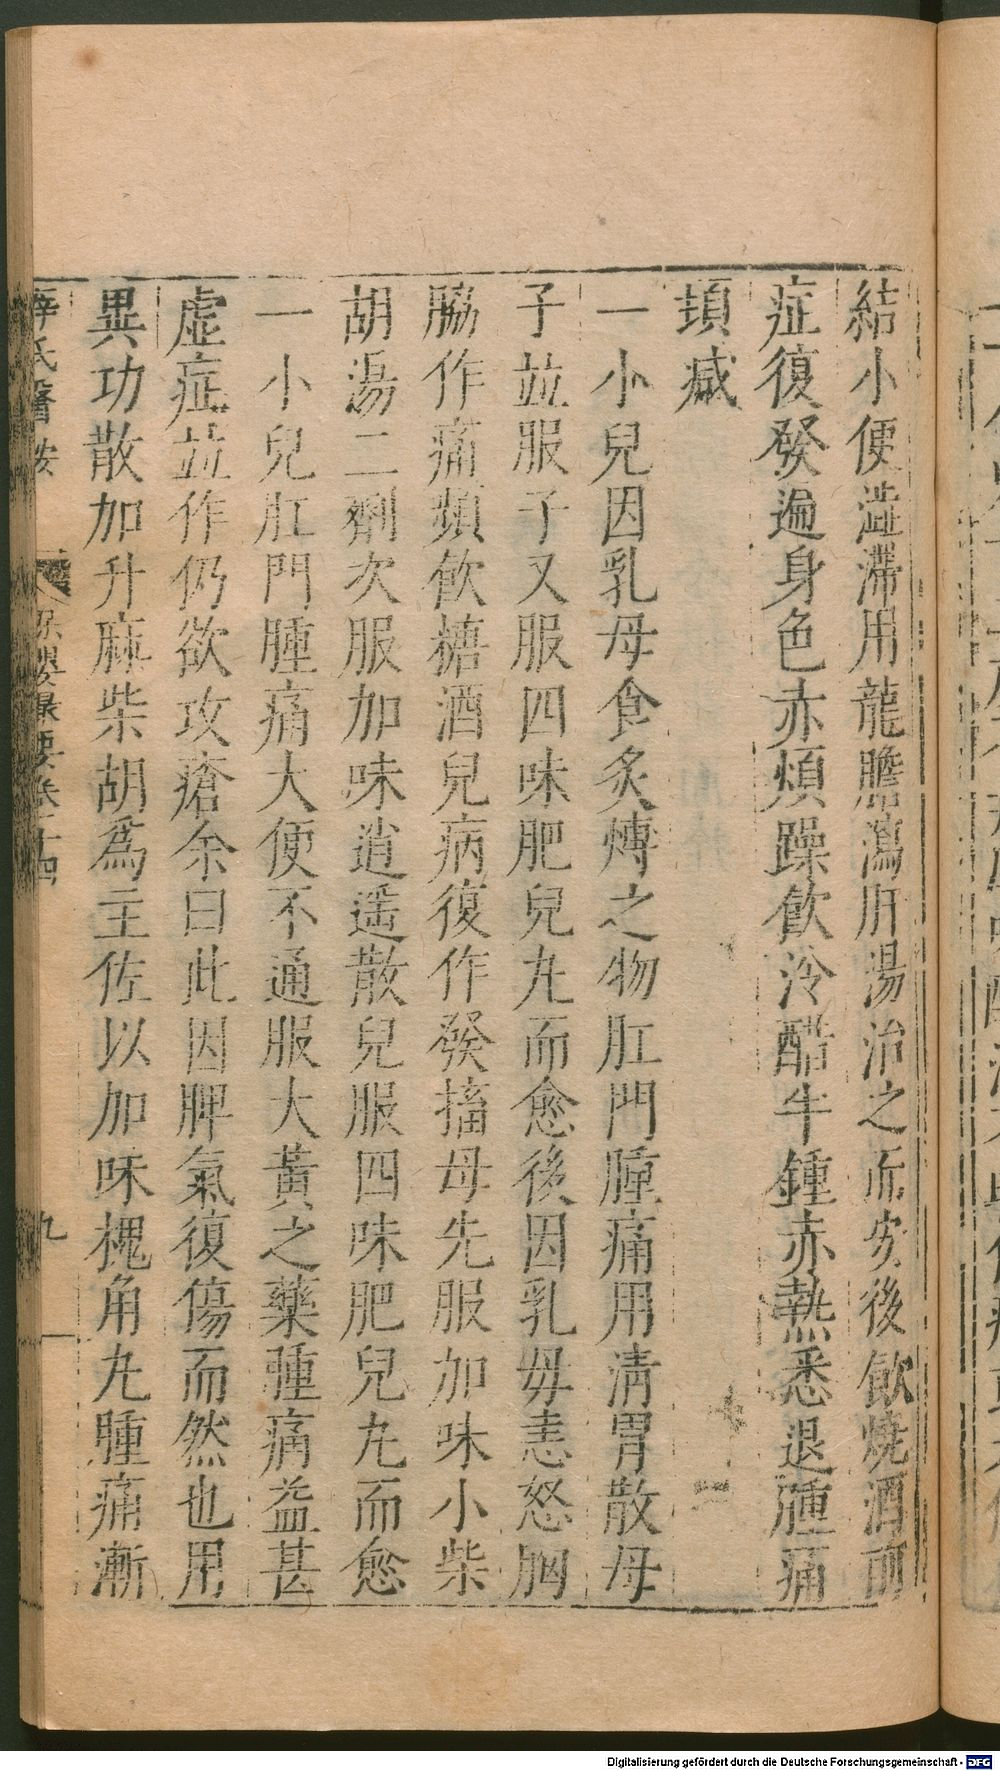 結小便澁滯用龍膽瀉肝湯治之而安後飲燒酒前
症復發遍身色赤煩躁飲冷醋牛鍾赤熱悉退腫痛
頓减
一小兒因乳母食炙煿之物肛門腫痛用清胃散母
子並服子又服四味肥兒丸而愈後因乳母恚怒胸
脇作痛頻飲糖酒兒病復作發搐母先服加味小柴
胡湯二劑次服加味逍遥散兒服四味肥兒丸而愈
一小兒肛門腫痛大便不通服大黃之藥腫痛益甚
虚症並作仍欲攻瘡余曰此因脾氣復傷而然也用
異功散加升麻柴胡爲主佐以加味槐角丸腫痛漸
薛氏醫按
保嬰撮要卷十四
九
Digitalisierung gefördert durch die Deutsche Forschungsgemeinschaft - DFG